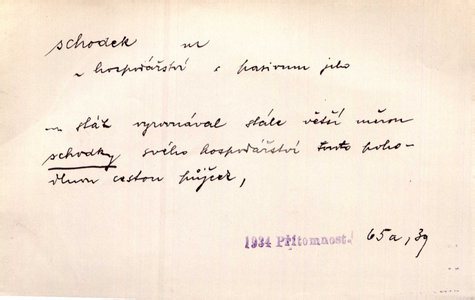 schodek m
v hospodářství s pasivum jeho
— stát vyrovnával stále větší měrou
schodky svého hospodářství touto poho-
dlnou cestou půjček,
1934 Přítomnost. 65a, 39